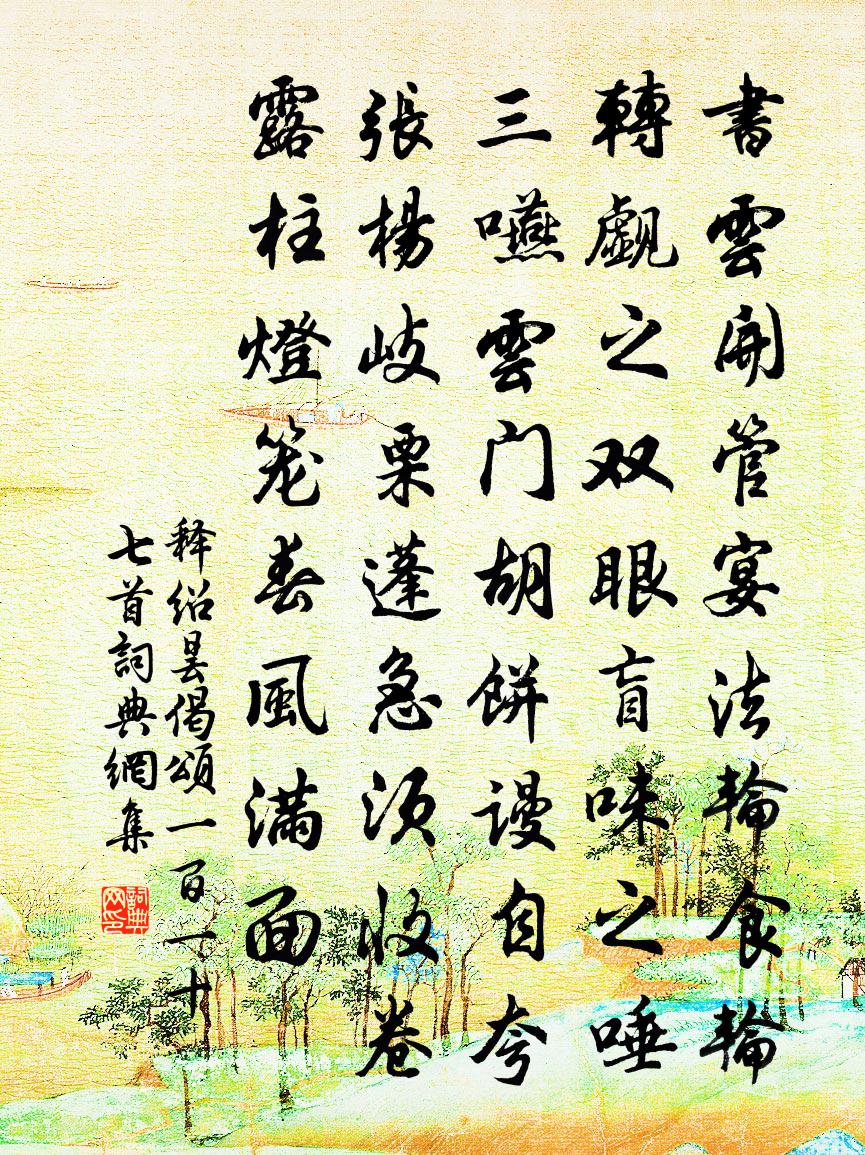 書雲開管宴法輪食輪
轉觑之双眼盲味之唾
三嚥雲门胡餅謾自夸
張楊岐栗蓬急须收卷
露柱燈笼春風满面
释绍昙偈颂一百一十
七首詞典網集
詞典
网印